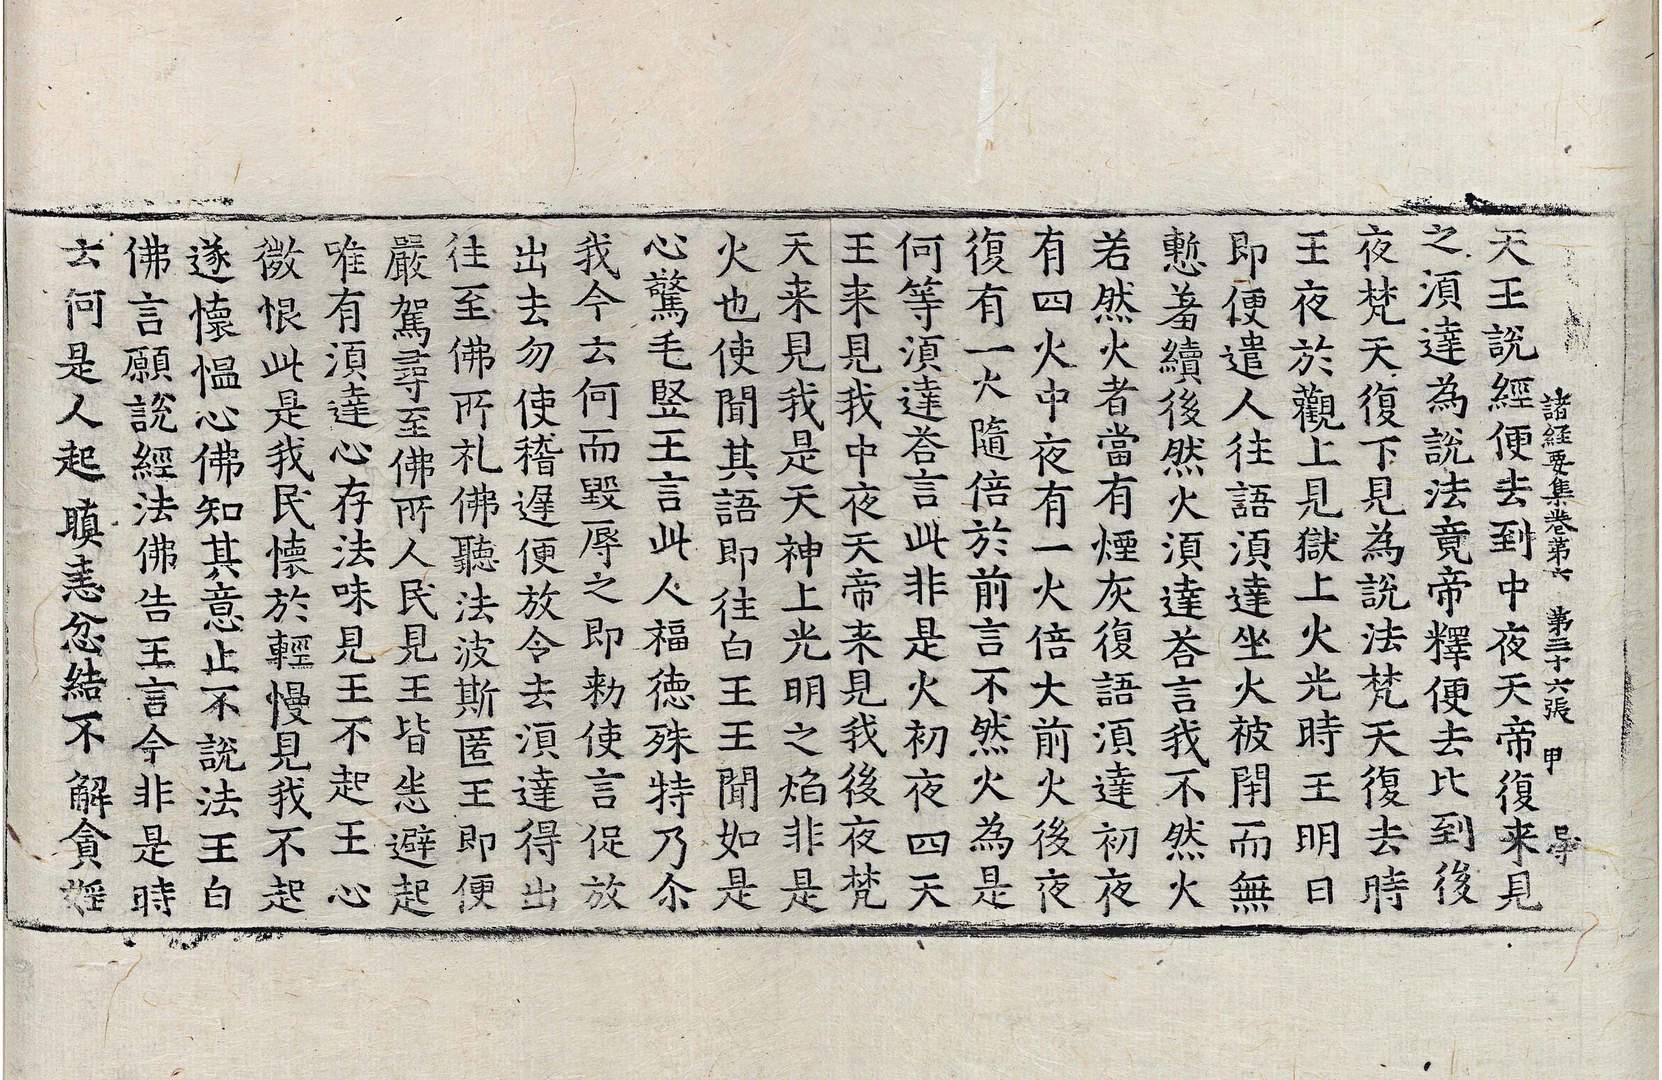 諸經要集卷第六　第三十六張　甲
天王說經便去到中夜天帝復来見
之湏達為說法竟帝釋便去比到後
夜梵天復下見為說法梵天復去時
王夜於觀上見獄上火光時王明日
即便遣人往語湏達坐火被閇而無
慙羞續後然火湏達荅言我不然火
若然火者當有煙灰復語湏達初夜
有四火中夜有一火倍大前火後夜
復有一火隨倍於前言不然火為是
何等湏達荅言此非是火初夜四天
王来見我中夜天帝来見我後夜梵
天来見我是天神上光明之焰非是
火也使聞其語即往白王王聞如是
心驚毛竪王言此人福德殊特乃尒
我今云何而毀辱之即勑使言促放
出去勿使稽遲便放令去湏達得出
往至佛所礼佛聽法波斯匿王即便
嚴駕尋至佛所人民見王皆悉避起
唯有湏達心存法味見王不起王心
微恨此是我民懷於輕慢見我不起
遂懷愠心佛知其意止不說法王白
佛言願說經法佛告王言今非是時
云何是人起瞋恚忿結不解貪婬